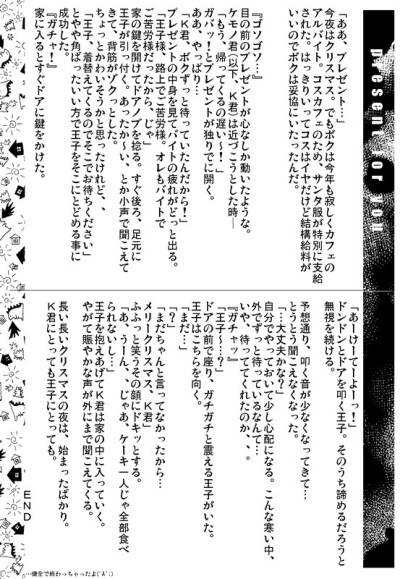 present for you
「ああ、プレゼント…」
今夜はクリスマス。でもボクは今年も寂しくカフェの
アルバイト。コスカフェのため、サンタ服が特別に支給
された。はっきりいってコスはイヤだけど結構給料が
いいのでボクは妥協にいたったんだ。
『ゴソゴソ…』
目の前のプレゼントが心なしか動いたような。
ケモノ君(以下、K君)は近づこうとした時―
「もう、帰ってくるの遅い～！」
ガバッ！とプレゼントが独りでに開く。
ああ、やっぱり…
「K君、ボクずっと待っていたんだから！」
プレゼントの中身を見てバイトの疲れがどっと出る。
「王子様、路上でご苦労様。オレもバイトで
ご苦労様だったから、じゃ」
家の鍵を開けてドアノブを捻る。すぐ後ろ、足元に
王子が引っ付く。あったか～い、とか小声で聞こえて
きて、背筋がゾクっとした。
ちょっとかわいそうかと思ったけれど、、
「王子、着替えてくるのでそこでお待ちください」
とやや角ばったいい方で王子をそこにとどめる事に
成功した。
『ガチャ！』
家に入るとすぐドアに鍵をかけた。
「あーけーてーよーっ！」
ドンドンとドアを叩く王子。そのうち諦めるだろうと
無視を続ける。
予想通り、叩く音が少なくなってきて…
とうとう聞こえなくなった。
「…大丈夫かな？」
自分でやっておいて少し心配になる。こんな寒い中、
外でずっと待っているなんて…
いや、待っててくれたのか、、。
『ガチャッ』
「王子～…？」
ドアの前で座り、ガチガチと震える王子がいた。
王子はこちらを向く。
「まだ…」
「？」
「まだちゃんと言ってなかったから…
メリークリスマス、K君」
ふふっと笑うその顔にドキッとする。
「あ、うーん、、じゃあ、ケーキ一人じゃ全部食べ
られないし…」
王子を抱えあげてK君は家の中に入っていく。
やがて賑やかな声が外にまで聞こえてくる。
長い長いクリスマスの夜は、始まったばかり。
K君にとっても王子にとっても。
END
…健全で終わっちゃったよ(´A`;)